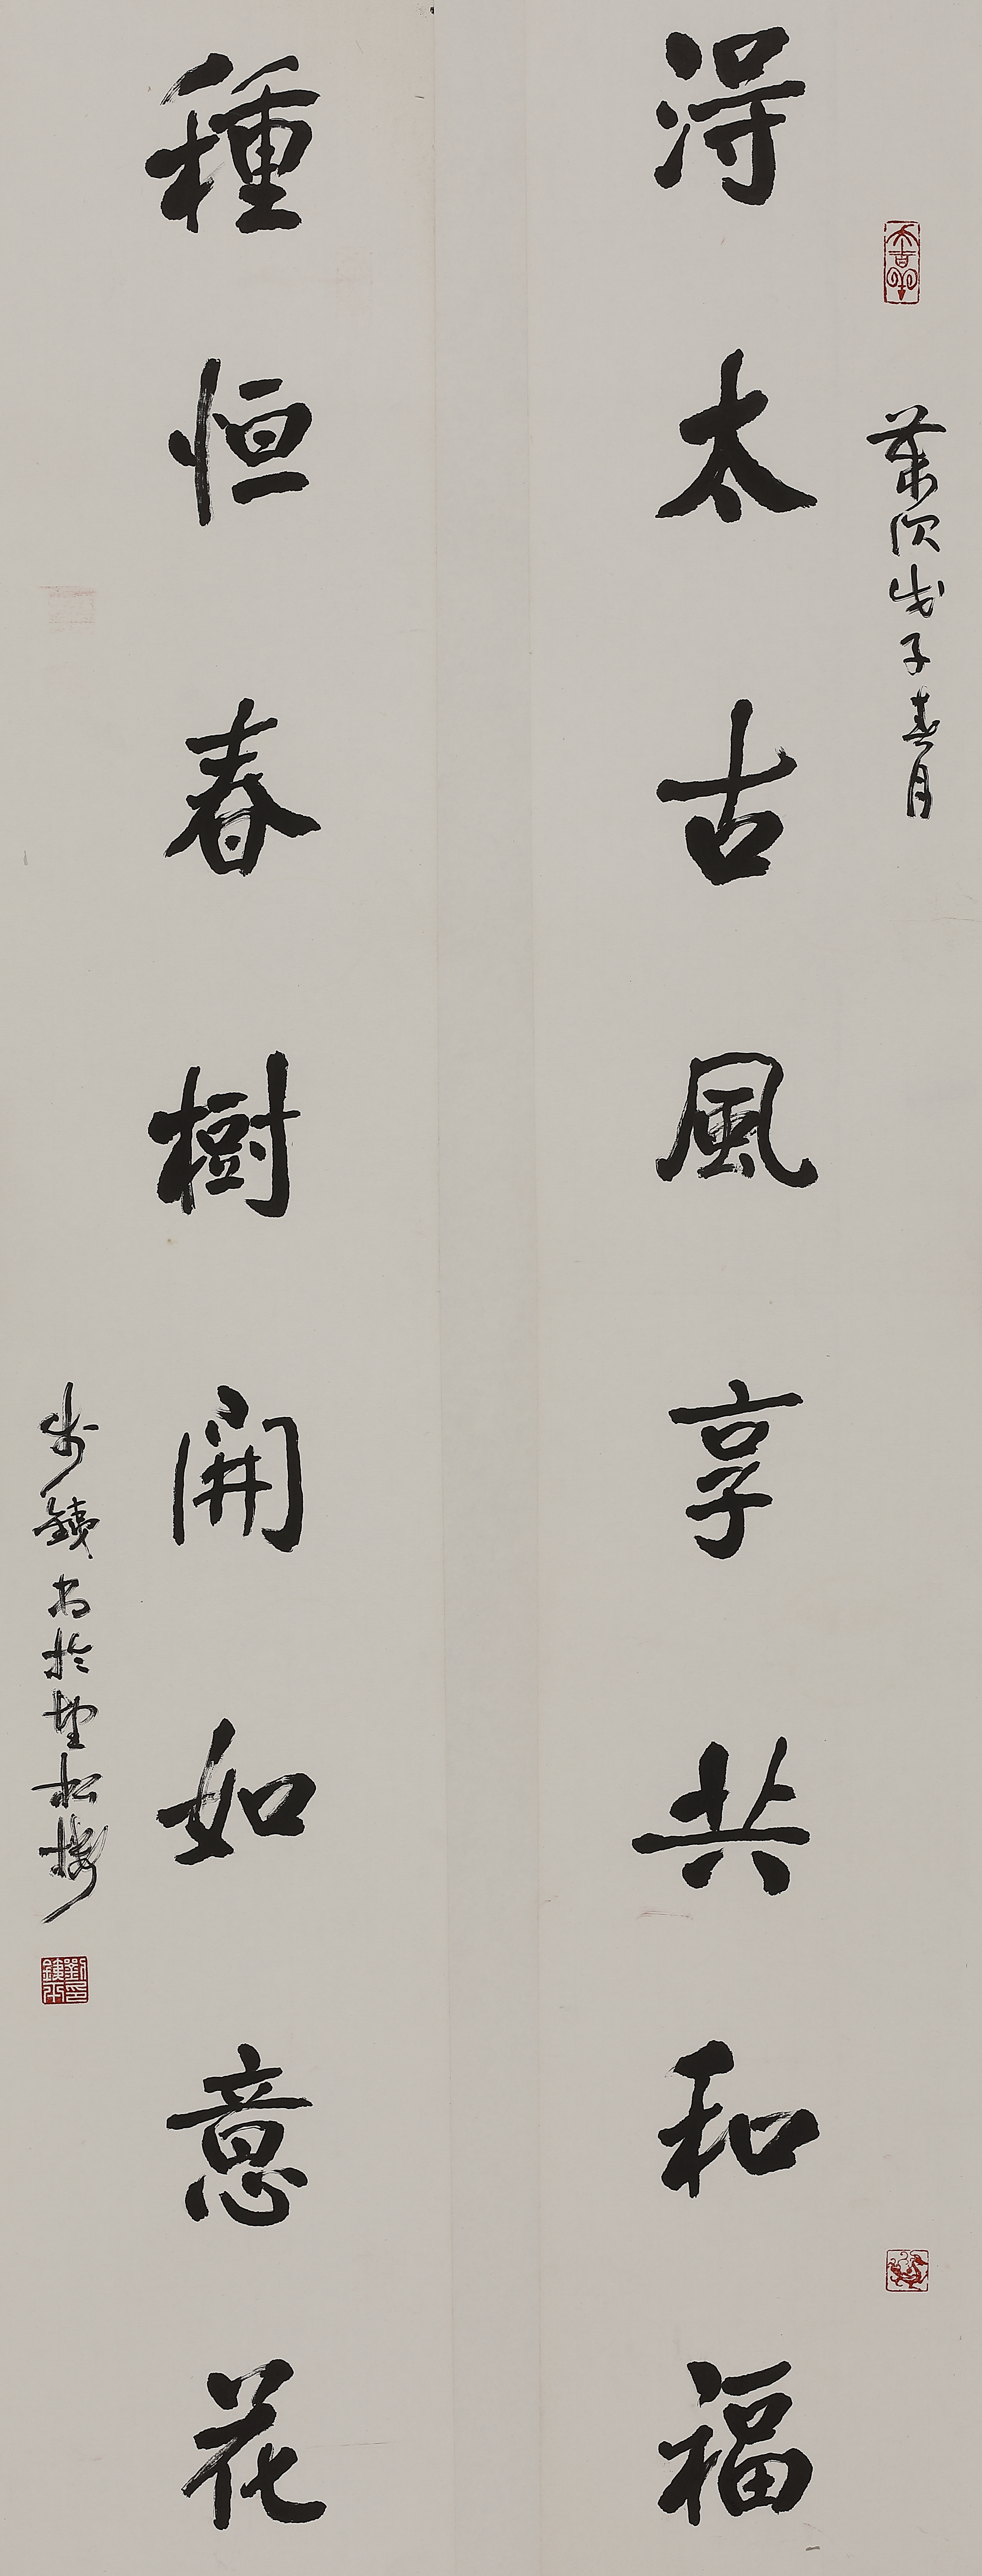 歲次戊子春月
得太古風享共和福
種恒春樹開如意花
書於望松樓